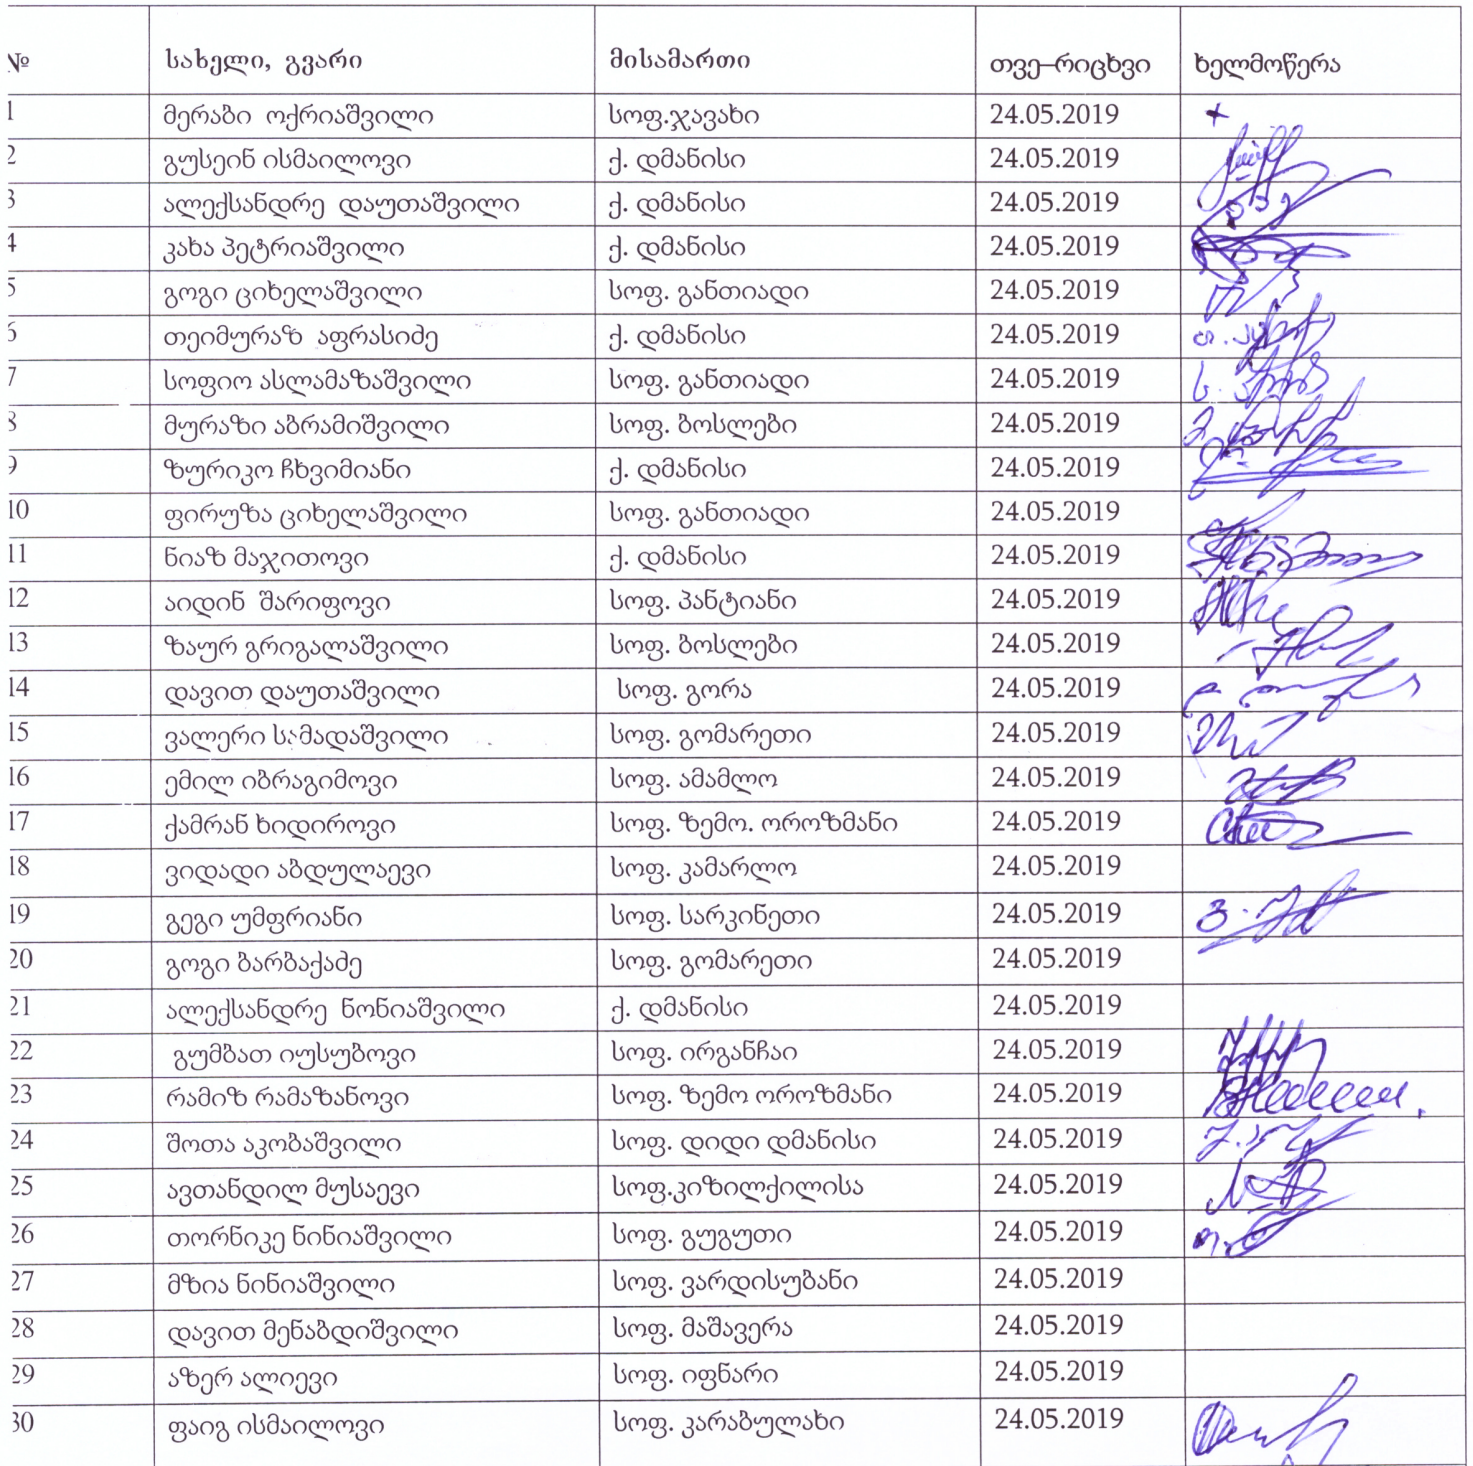 № სახელი, გვარი მისამართი თვე–რიცხვი ხელმოწერა
1 მერაბი ოქრიაშვილი სოფ.ჯავახი 24.05.2019 +
2 გუსეინ ისმაილოვი ქ. დმანისი 24.05.2019
3 ალექსანდრე დაუთაშვილი ქ. დმანისი 24.05.2019
4 კახა პეტრიაშვილი ქ. დმანისი 24.05.2019
5 გოგი ციხელაშვილი სოფ. განთიადი 24.05.2019
6 თეიმურაზ აფრასიძე ქ. დმანისი 24.05.2019
7 სოფიო ასლამაზაშვილი სოფ. განთიადი 24.05.2019
8 მურაზი აბრამიშვილი სოფ. ბოსლები 24.05.2019
9 ზურიკო ჩხვიმიანი ქ. დმანისი 24.05.2019
10 ფირუზა ციხელაშვილი სოფ. განთიადი 24.05.2019
11 ნიაზ მაჯითოვი ქ. დმანისი 24.05.2019
12 აიდინ შარიფოვი სოფ. პანტიანი 24.05.2019
13 ზაურ გრიგალაშვილი სოფ. ბოსლები 24.05.2019
14 დავით დაუთაშვილი სოფ. გორა 24.05.2019
15 ვალერი სამადაშვილი სოფ. გომარეთი 24.05.2019
16 ემილ იბრაგიმოვი სოფ. ამამლო 24.05.2019
17 ქამრან ხიდიროვი სოფ. ზემო. ოროზმანი 24.05.2019
18 ვიდადი აბდულაევი სოფ. კამარლო 24.05.2019
19 გეგი უმფრიანი სოფ. სარკინეთი 24.05.2019
20 გოგი ბარბაქაძე სოფ. გომარეთი 24.05.2019
21 ალექსანდრე ნონიაშვილი ქ. დმანისი 24.05.2019
22 გუმბათ იუსუბოვი სოფ. ირგანჩაი 24.05.2019
23 რამიზ რამაზანოვი სოფ. ზემო ოროზმანი 24.05.2019
24 შოთა აკობაშვილი სოფ. დიდი დმანისი 24.05.2019
25 ავთანდილ მუსაევი სოფ.კიზილქილისა 24.05.2019
26 თორნიკე ნინიაშვილი სოფ. გუგუთი 24.05.2019
27 მზია ნინიაშვილი სოფ. ვარდისუბანი 24.05.2019
28 დავით მენაბდიშვილი სოფ. მაშავერა 24.05.2019
29 აზერ ალიევი სოფ. იფნარი 24.05.2019
30 ფაიგ ისმაილოვი სოფ. კარაბულახი 24.05.2019